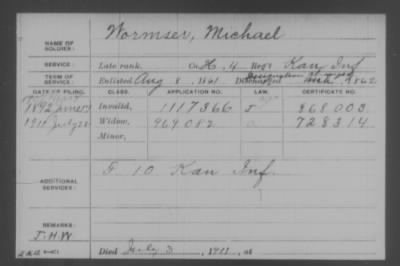 Wormser, Michael
NAME OF SOLDIER:
SERVICE: Late rank, Co. H, 4 Reg't Kan Inf
TERM OF SERVICE: Enlisted Aug 8, 1861 Discharged 1862
DATE OF FILING. CLASS. APPLICATION NO. LAW. CERTIFICATE NO.
1892 June Invalid, 1117366 J 868003
1911 July 22 Widow, 969082 728314
Minor,
ADDITIONAL SERVICES: F 10 Kan Inf.
REMARKS:
J.H.W
Died July 3, 1911, at